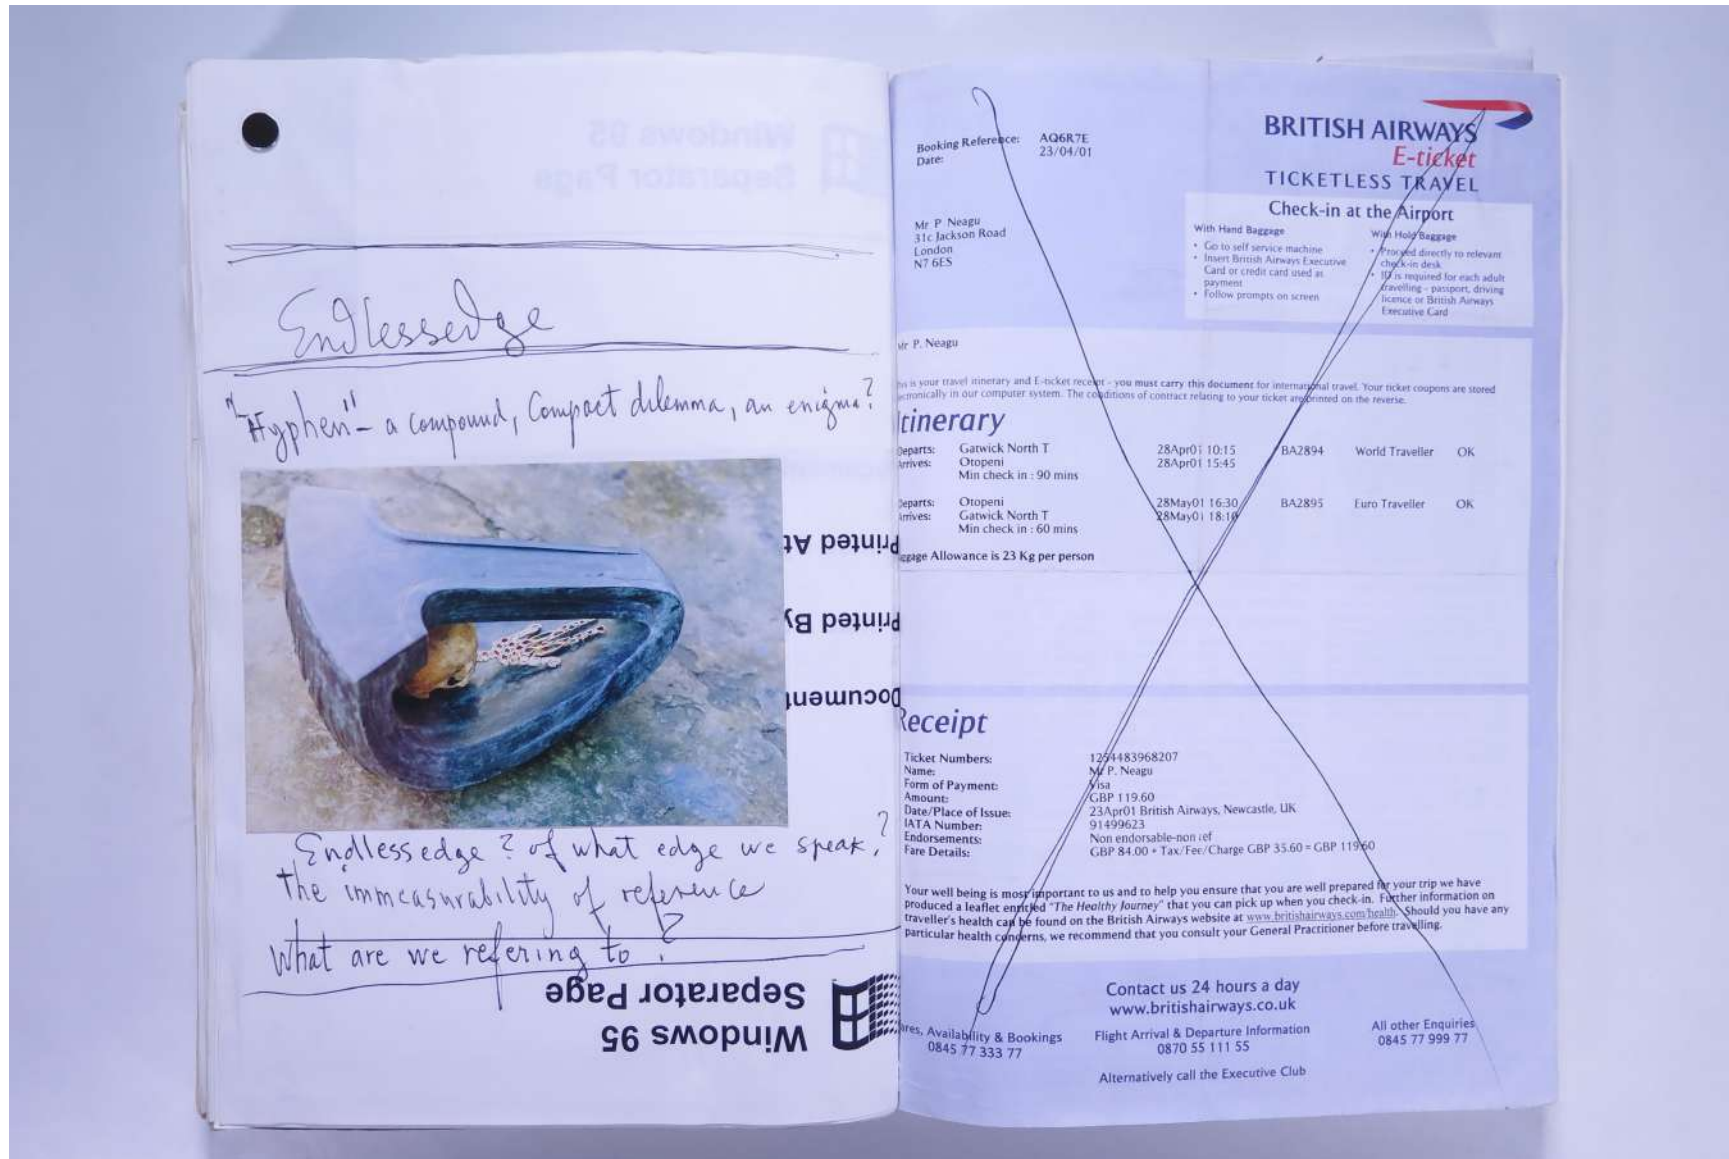 Windows 95
Separator Page
Endlessedge
"Hyphen" – a compound, Compact dilemma, an enigma?
Printed At
Printed By
Document
Endlessedge? of what edge we speak?
the immeasurability of reference
What are we refering to?
Separator Page
Windows 95
Booking Reference: AQ6R7E
Date: 23/04/01
BRITISH AIRWAYS
E-ticket
TICKETLESS TRAVEL
Mr P Neagu
31c Jackson Road
London
N7 6ES
Check-in at the Airport
With Hand Baggage
• Go to self service machine
• Insert British Airways Executive
Card or credit card used as
payment
• Follow prompts on screen
With Hold Baggage
• Proceed directly to relevant
check-in desk
• ID is required for each adult
travelling - passport, driving
licence or British Airways
Executive Card
Mr P. Neagu
his is your travel itinerary and E-ticket receipt - you must carry this document for international travel. Your ticket coupons are stored
ectronically in our computer system. The conditions of contract relating to your ticket are printed on the reverse.
tinerary
Departs: Gatwick North T 28Apr01 10:15 BA2894 World Traveller OK
Arrives: Otopeni 28Apr01 15:45
Min check in : 90 mins
Departs: Otopeni 28May01 16:30 BA2895 Euro Traveller OK
Arrives: Gatwick North T 28May01 18:10
Min check in : 60 mins
ggage Allowance is 23 Kg per person
Receipt
Ticket Numbers: 1254483968207
Name: Mr P. Neagu
Form of Payment: Visa
Amount: GBP 119.60
Date/Place of Issue: 23Apr01 British Airways, Newcastle, UK
IATA Number: 91499623
Endorsements: Non endorsable-non ref
Fare Details: GBP 84.00 + Tax/Fee/Charge GBP 35.60 = GBP 119.60
Your well being is most important to us and to help you ensure that you are well prepared for your trip we have
produced a leaflet entitled "The Healthy Journey" that you can pick up when you check-in. Further information on
traveller's health can be found on the British Airways website at www.britishairways.com/health. Should you have any
particular health concerns, we recommend that you consult your General Practitioner before travelling.
Contact us 24 hours a day
www.britishairways.co.uk
ares, Availability & Bookings
0845 77 333 77
Flight Arrival & Departure Information
0870 55 111 55
All other Enquiries
0845 77 999 77
Alternatively call the Executive Club